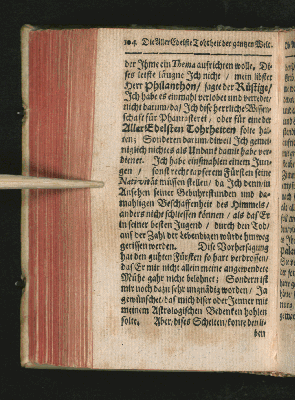 104 Die AllerEdelste Tohrheit der gantzen Welt.
der Ihme ein Thema aufrichten wolle. Di-
ses letste läugne Ich nicht / mein libster
Herr Philanthon / sagte der Rüstige /
Ich habe es einmahl verlobet und verredet /
nicht darum / daß Ich dise herrliche Wissen-
schaft für Phantasterei / oder für eine der
AllerEdelsten Tohrheiten solte hal-
ten; Sonderen darum / dieweil Ich gemei-
niglich nichtes als Undank damit habe ver-
dienet. Ich habe einsmahlen einem Jun-
gen / sonst rechtapferem Fürsten seine
Nativität müssen stellen / da Ich denn in
Ansehen seiner Gebuhrtstunden und da-
mahligen Beschaffenheit des Himmels /
anders nicht schliessen können / als daß Er
in seiner besten Jugend / durch den Tod /
auß der Zahl der Lebendigen würde hinweg
gerissen werden. Dise Vorhersagung
hat den guhten Fürsten so hart verdrossen /
daß Er mir nicht allein meine angewendete
Mühe gahr nicht belohnet; Sondern ist
mir noch dazu sehr ungnädig worden / Ja
gewünschet / daß mich diser oder Jenner mit
meinem Astrologischen Bedenken hohlen
solte. Aber / dises Schelten / sonderen li-
ben